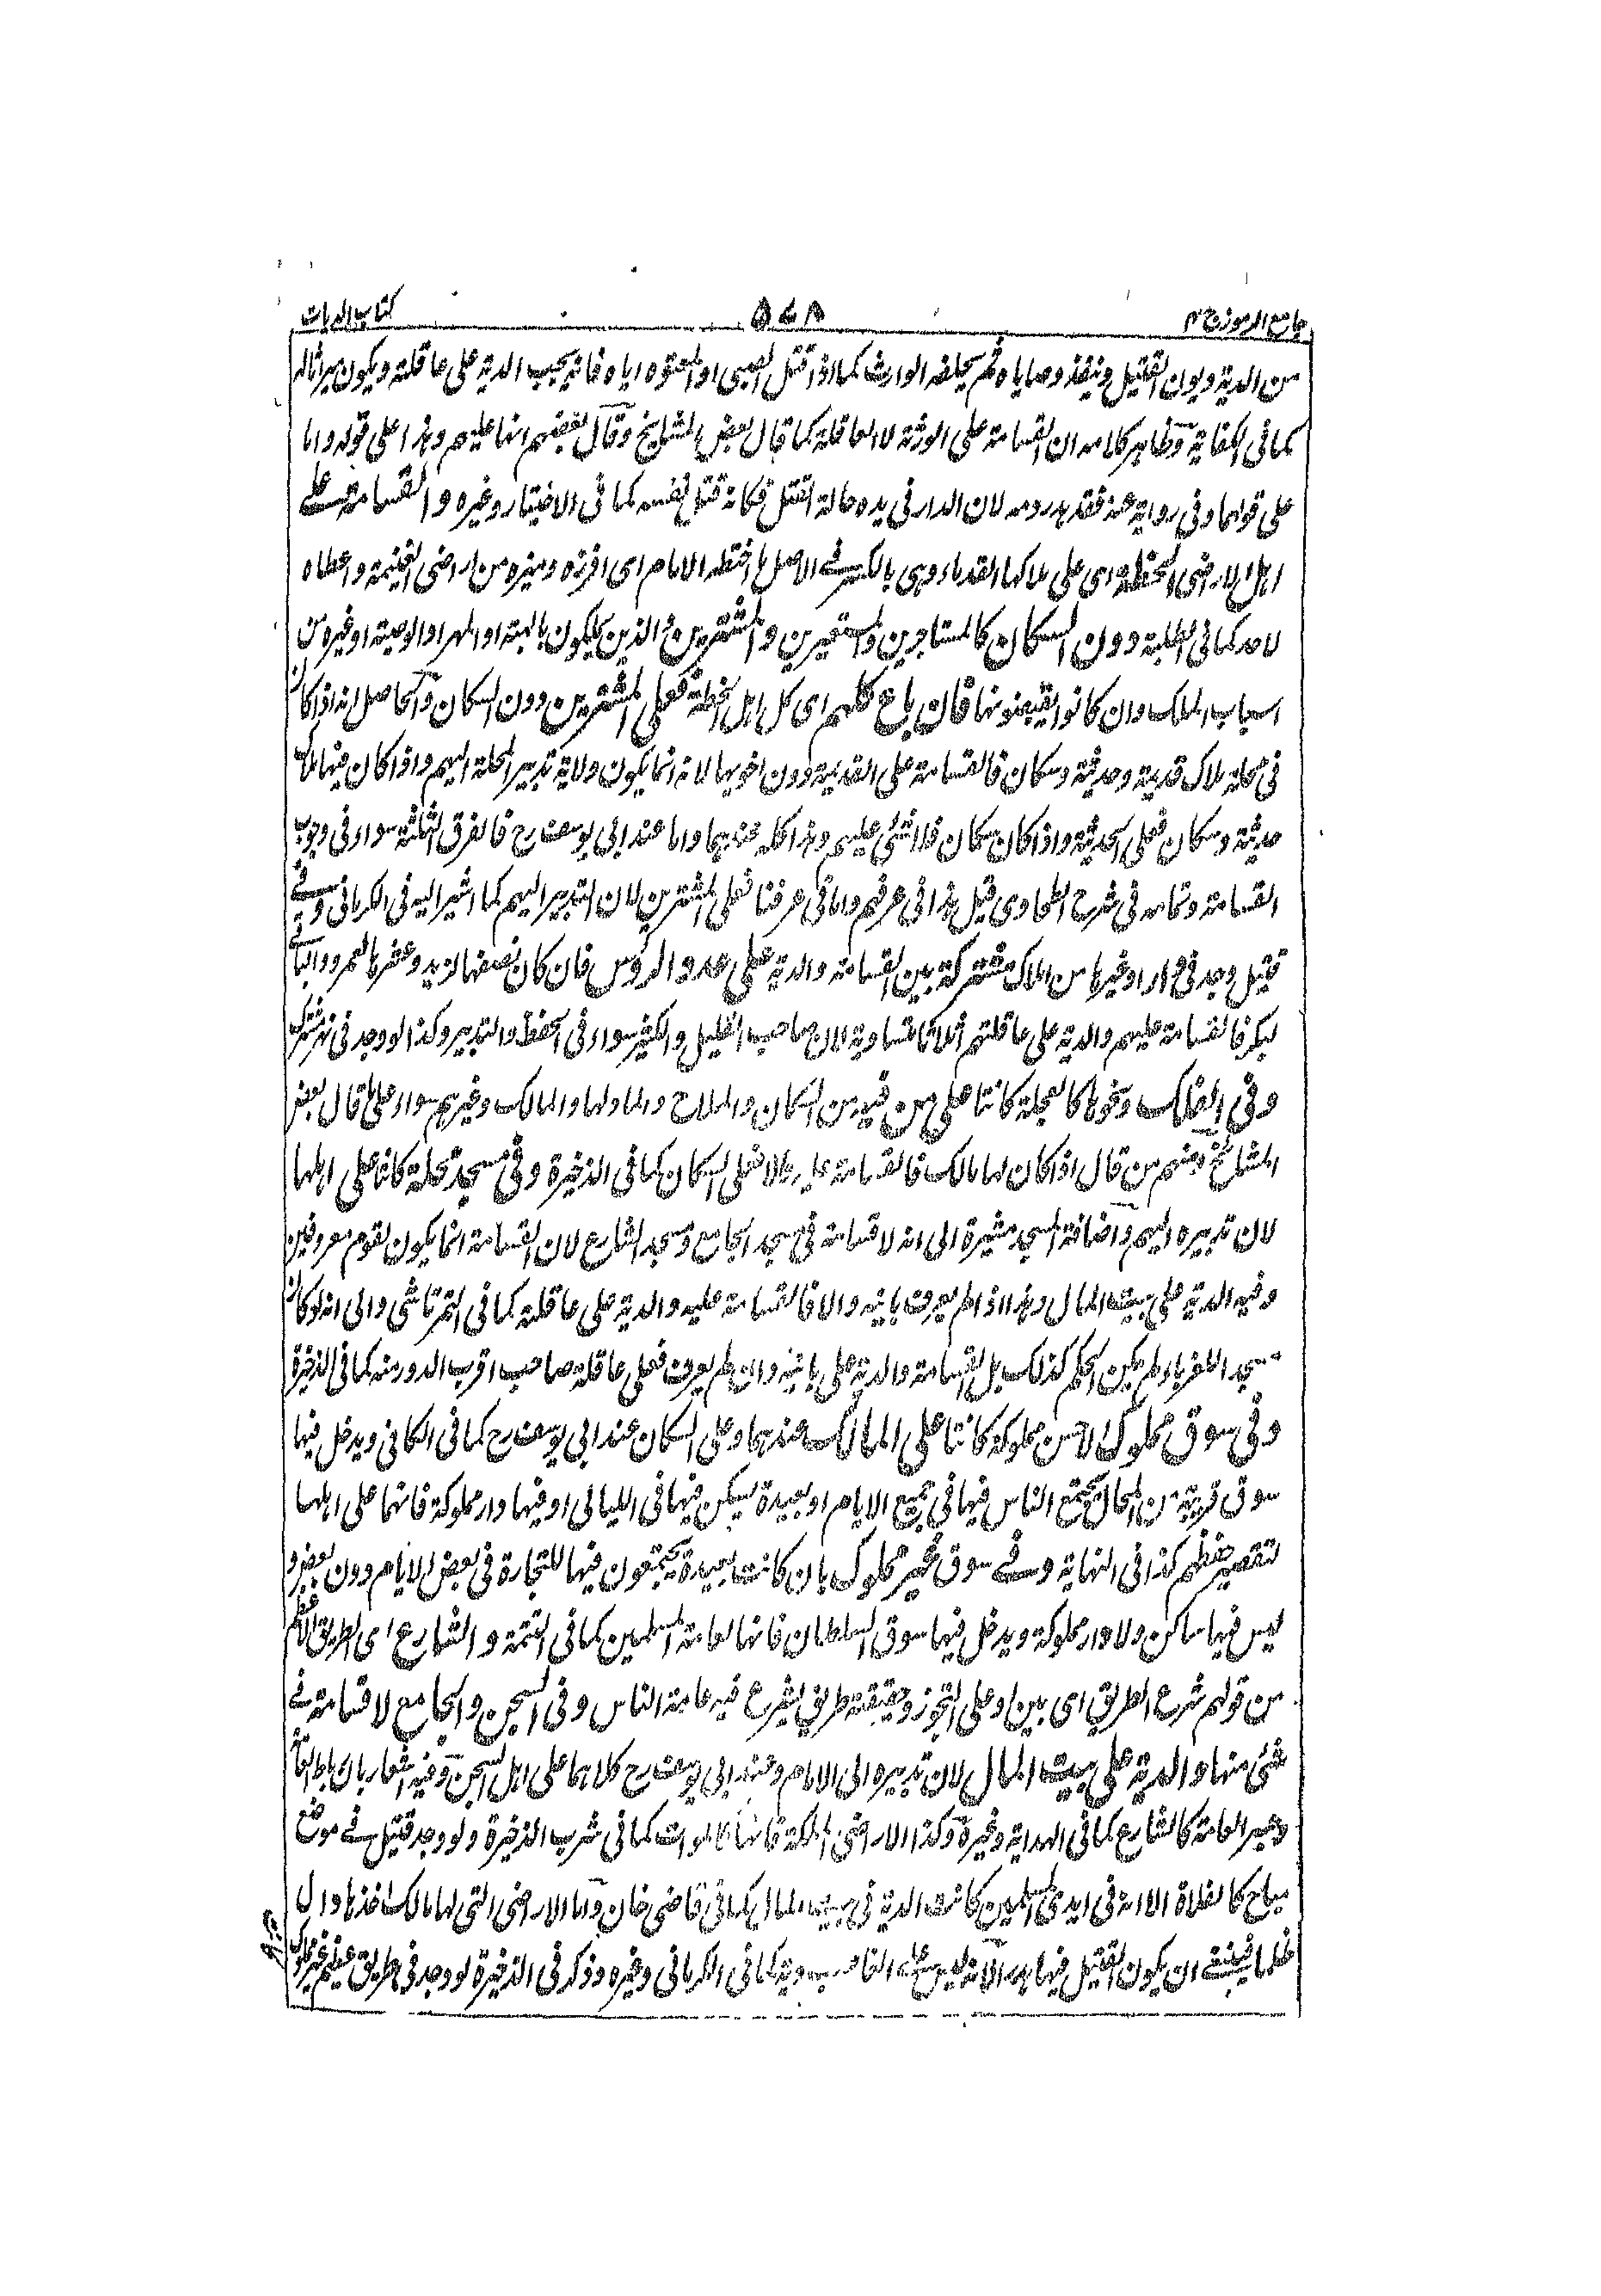 جامع الرموز ج ٢ ٥٧٨ كتاب الديات
من الدية ديون القتيل وتنفذ وصاياه ثم يخلفه الوارث كما اذا قتل الصبى او المعتوه اباه فانه يجب الدية على عاقلته ويكون ميراثا له
كما فى الكفاية وظاهر كلامه ان القسامة على الورثة لا العاقلة كما قال بعض المشايخ وقال بعضهم انها عليهم وهذا على قوله واما
على قولهما وفى رواية عنه فقد هدر دمه لان الدار فى يده حالة القتل فكانه قتل نفسه كما فى الاختيار وغيره و القسامة على
اهل الارضى الخطة اى على ملاكها القدماء وهى بالكسر فى الاصل ما اختطه الامام اى افرزه وميزه من اراضى الغنيمة واعطاه
لاحد كما فى الطلبة دون السكان كالمستاجرين والمستعيرين و المشترين والذين يملكون بالهبة او المهر او الوصية او غيره من
اسباب الملك وان كانوا يقبضونها فان باع كلهم اى كل اهل الخطة فعلى المشترين دون السكان والحاصل انه اذا كان
فى محلة ملاك قديمة وحديثة وسكان فالقسامة على القديمة دون اخويها لانه انما يكون ولاية تدبير المحلة اليهم واذا كان فيها ملاك
حديثة وسكان فعلى الحديثة واذا كان سكان فلا شئ عليهم وهذا كله عندهما واما عند ابى يوسف رح فالفرق الثلثة سواء فى وجوب
القسامة وتمامه فى شرح الطحاوى قيل هذا فى عرفهم واما فى عرفنا فعلى المشترين لان التدبير اليهم كما اشير اليه فى الكرمانى وفى
قتيل وجد فى دار او غيرها من الملاك مشتركة بين القسامة والدية على عدد الرؤس فان كان نصفها لزيد وعشرها لعمرو والباقى
لبكر فالقسامة عليهم والدية على عاقلتهم اثلاثا متساوية لان صاحب القليل والكثير سواء فى الحفظ والتدبير وكذا لو وجد فى نهر مشترك
و فى الفلك ونحوها كالعجلة كانتا على من فيه من السكان والملاح والمالك وغيرهم سواء على ما قال بعض
المشايخ ومنهم من قال اذا كان لها مالك فالقسامة عليه والا فعلى السكان كما فى الذخيرة و فى مسجد محلة كانتا على اهلها
لان تدبيره اليهم واضافة المسجد مشيرة الى انه لا قسامة فى مسجد الجامع ومسجد الشارع لان القسامة انما يكون لقوم معروفين
وفيه الدية على بيت المال وهذا اذا لم يعرف بانيه والا فالقسامة عليه والدية على عاقلته كما فى التمرتاشى والى انه لو كان
مسجد الغرباء لم يكن الحكم كذلك بل القسامة والدية على بانيه وان لم يعرف فعلى عاقلة صاحب اقرب الدور منه كما فى الذخيرة
و فى سوق مملوك لاحد مملوكة كانتا على المالك عندهما وعلى السكان عند ابى يوسف رح كما فى الكافى ويدخل فيها
سوق قريبة من المحال يجتمع الناس فيها فى جميع الايام او بعيدة يسكن فيها فى الليالى او فيها دار مملوكة فانهما على اهلها
لتقصير حفظهم كذا فى النهاية و فى سوق غير مملوك بان كانت بعيدة يجتمعون فيها للتجارة فى بعض الايام دون بعض و
ليس فيها ساكن ولا دار مملوكة ويدخل فيها سوق السلطان فانها لعامة المسلمين كما فى التتمة و الشارع اى الطريق الاعظم
من قولهم شرع الطريق اى بين او على التجوز وحقيقته طريق يشرع فيه عامة الناس و فى السجن و الجامع لا قسامة فى
شئ منها و الدية على بيت المال لان تدبيره الى الامام وعند ابى يوسف رح كلاهما على اهل السجن وفيه اشعار بان
وجسر العامة كالشارع كما فى الهداية وغيره وكذا الاراضى فانها كالموات كما فى شرب الذخيرة ولو وجد قتيل فى موضع
مباح كالفلاة الا انه فى ايدى المسلمين كانت الدية فى بيت المال كما فى قاضى خان واما الاراضى التى لها مالك اخذها وال
ظلما فينبغى ان يكون القتيل فيها هدرا لانه ليس على الغاصب دية كما فى الكرمانى وغيره وذكر فى الذخيرة لو وجد فى طريق عظيم غير مملوك